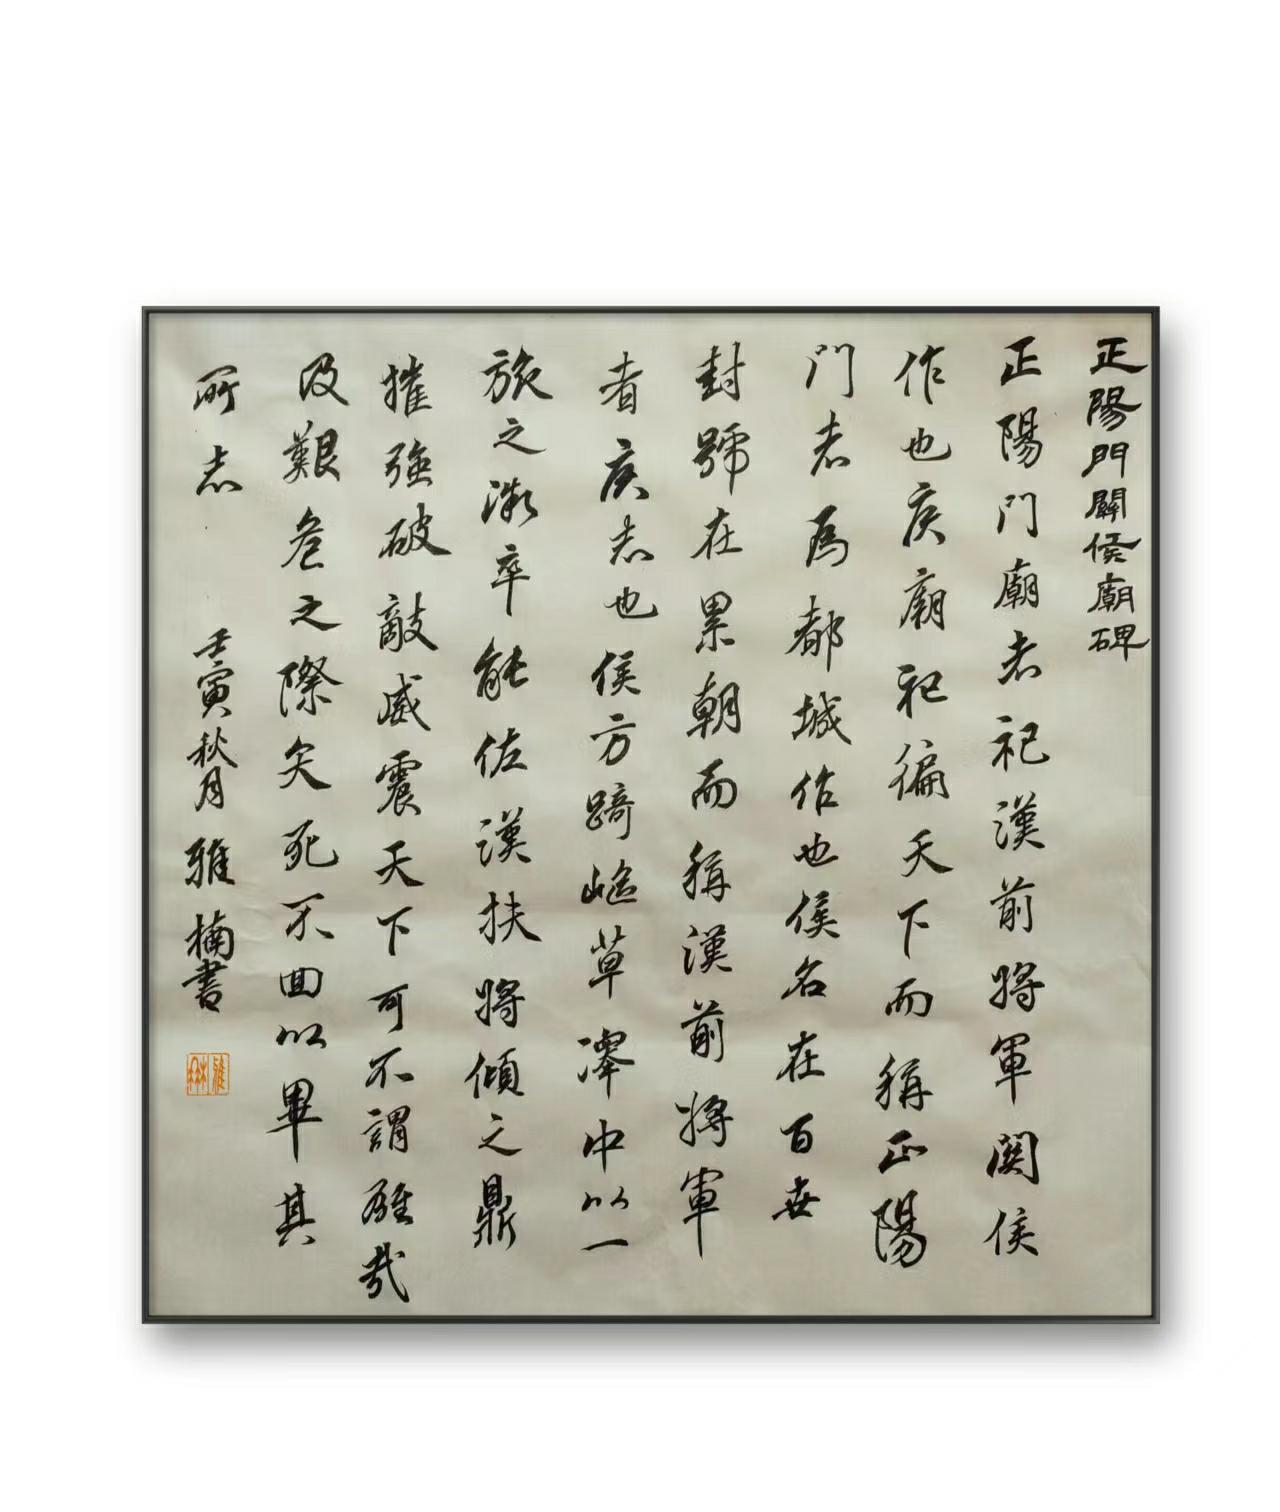 正陽門關侯廟碑
正陽门廟者祀漢前將軍関侯
作也侯廟祀徧天下而稱正陽
门者為都城作也侯名在百世
封號在累朝而稱漢前將軍
者侯志也侯方踦嶇草澤中以一
旅之微卒能佐漢扶將傾之鼎
摧強破敵威震天下可不謂雄哉
及艱危之際矢死不回以畢其
所志
壬寅秋月雅楠書